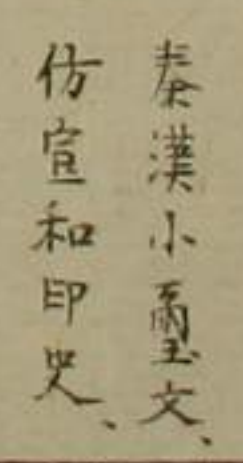 秦漢小璽文、
仿宣和印史、